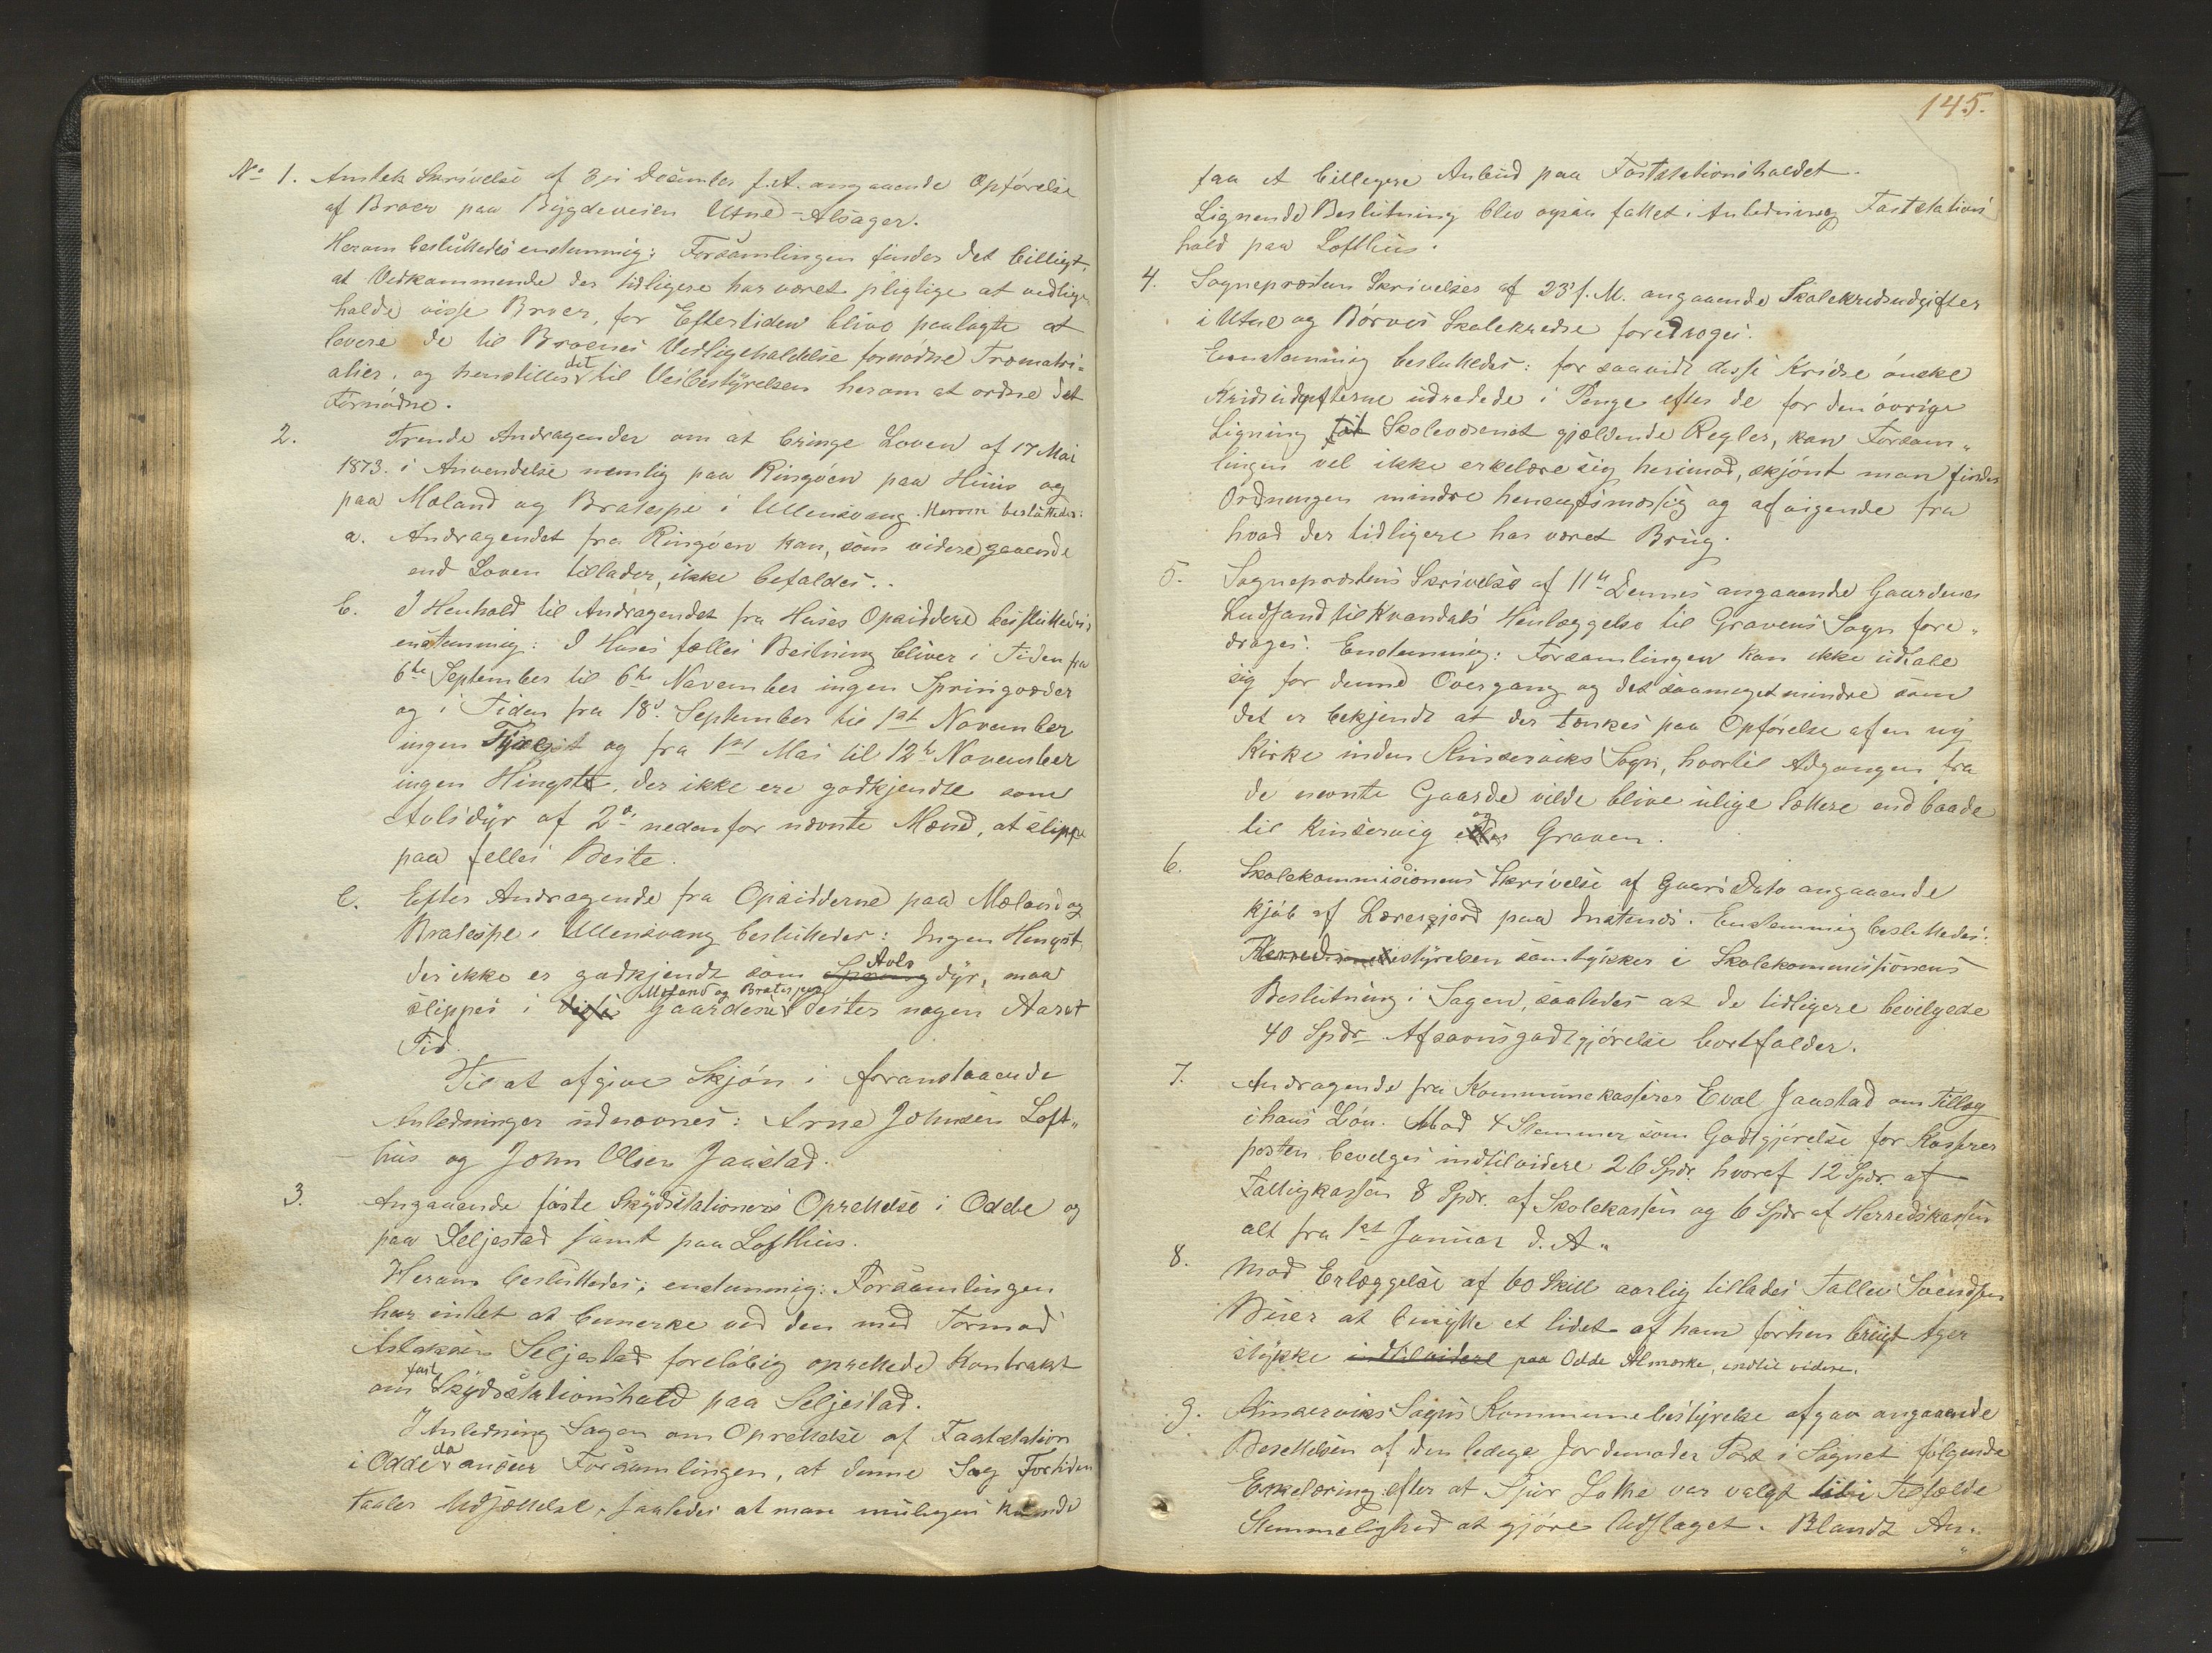 No 1. Amtets Skrivelse af 3je December f. A. angaaende Opførelse
af Broer paa Bygdeveien Utne-Alsager.
Herom besluttedes enstemmig: Forsamlingen finder det billigt,
at Vedkommende der tidligere har været pligtige at vedlige-
holde visse Broer, for Eftertiden blive paalagte at
levere de til Broenes Vedligeholdelse fornødne Træmatri=
alier, og henstilles det til Veibestyrelsen herom at ordne det
Fornødne.
2. Trende Andragender om at bringe Loven af 17 Mai
1873. i Anvendelse nemlig paa Ringøen paa Huus og
paa Mæland og Bratespe i Ullensvang. Herom besluttedes:
a. Andragendet fra Ringøen kan, som videregaaende
end Loven tillader, ikke befaldes..
b. I Henhold til Andragendet fra Huses Opsiddere besluttedes
enstemmig: I Huses fælles Beitning bliver i Tiden fra
6te September til 6te November ingen Springvæder
og i Tiden fra 18de September til 1st November
ingen Tyve og fra 1st Mai til 12te November
ingen Hingste, der ikke ere godkjendte som
Avlsdyr af 2de nedenfor nævnte Mænd, at slippe
paa felles Beite.
c. Efter Andragende fra Opsidderne paa Mæland og
Bratespe i Ullensvang besluttedes: Ingen Hengst,
der ikke er godkjendt som Spring Avlsdyr, maa
slippes i disse Gaardene Mæland og Bratespes Beiter nogen Aarets
Tid.
Til at afgive Skjøn i foranstaaende
Anledninger udnævnes: Arne Johnsen Loft"
hus og John Olsen Jaastad.
3. Angaaende faste Skydsstationers Oprettelse i Odde og
paa Seljestad samt paa Lofthus.
Herom besluttedes; enstemmig: Forsamlingen
har intet at bemerke ved den med Tormod
Aslaksen Seljestad foreløbig oprettede Kontrakt
om fast Skydsstationshold paa Seljestad.
I Anledning Sagen om Oprettelse af Faststation
i Odde da anseer Forsamlingen, at denne Sag Fortiden
taaler Udsættelse, saaledes at man muligens kunde
145.
faa et billigere Anbud paa Faststationsholdet.
Lignende Beslutning blev ogsaa fattet i Anledning Faststations
hold paa Lofthus.
4. Sognepræsten Skrivelser af 23' f. M. angaaende Skolekredsudgifter
i Utne og Børves Skolekredse foredroges.
Eenstemmig besluttedes: for saavidt disse Kredse ønske
Kredsudgifterne udredede i Penge efter de for den øvrige
Ligning til Skolevæsenet gjældende Regler, kan Forsam"
lingen vel ikke erkelære sig herimod, skjønt man finder
Ordningen mindre hensigtsmæssig og afvigende fra
hvad der tidligere har været Brug.
5. Sognepræstens Skrivelse af 11te Dennes angaaende Gaardenes
Ludsand til Kvandals Henlæggelse til Gravens Sogn fore"
drages. Enstemmig: Forsamlingen kan ikke udtale
sig for denne Overgang og det saameget mindre som
det er bekjendt at der tænkes paa Opførelse af en ny
Kirke inden Kinserviks Sogn, hvortil Adgangen fra
de nævnte Gaarde vilde blive ulige lettere end baade
til Kinservig eller og Graven.
6. Skolekommisionens Skrivelse af Gaars Dato angaaende
Kjøb af Lærergjord paa Instenæs. Enstemmig besluttedes:
Herredsbestyrelsen samtykker i Skolekommissionens
Beslutning i Sagen, saaledes at de tidligere bevilgede
40 Spdr Afsavnsgodtgjørelse bortfalder.
7. Andragende fra Kommunekasserer Eval Jaastad om Tillæg
i hans Løn. Mod 4 Stemmer, som Godtgjørelse for Kasserer
posten bevilges indtilvidere 26 Spdr. hvoraf 12 Spdr. af
Fattigkassen 8 Spdr. af Skolekassen og 6 Spdr af Herredskassen
alt fra 1st Januar d. A.
8. Mod Erlæggelse af 60 Skill aarlig tillades Tallev Svendsen
Buer at benytte et lidet af ham forhen brugt Ager
stykke indtilvidere paa Odde Almæske, indtil videre.
9. Kinserviks Sogns Kommunebestyrelse afgav angaaende
Besettelsen af den ledige Jordemoder Post i Sognet følgende
Erkelæring: efter at Sjur Lothe var valgt til i Tilfælde
Stemmelighed at gjøre Udslaget. Blandt An"